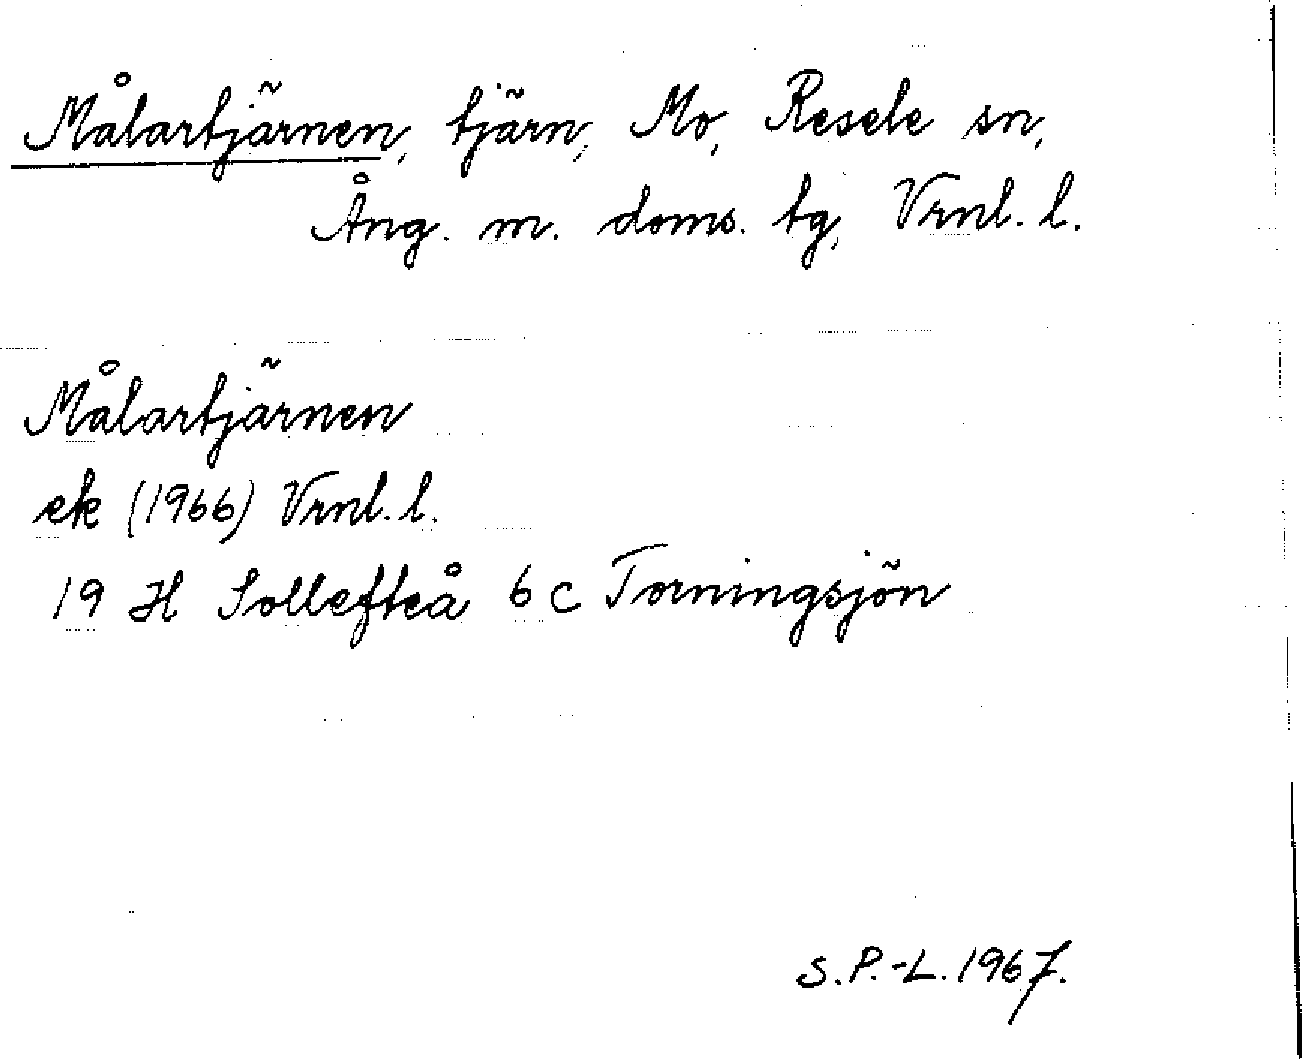 Målartjärnen, tjärn, Mo, Resele sn,
Ång. m. doms. tg, Vrnl. l.
Målartjärnen
ek (1966) Vrnl. l.
19 H Sollefteå 6 c Torningsjön
S.P.-L. 1967.